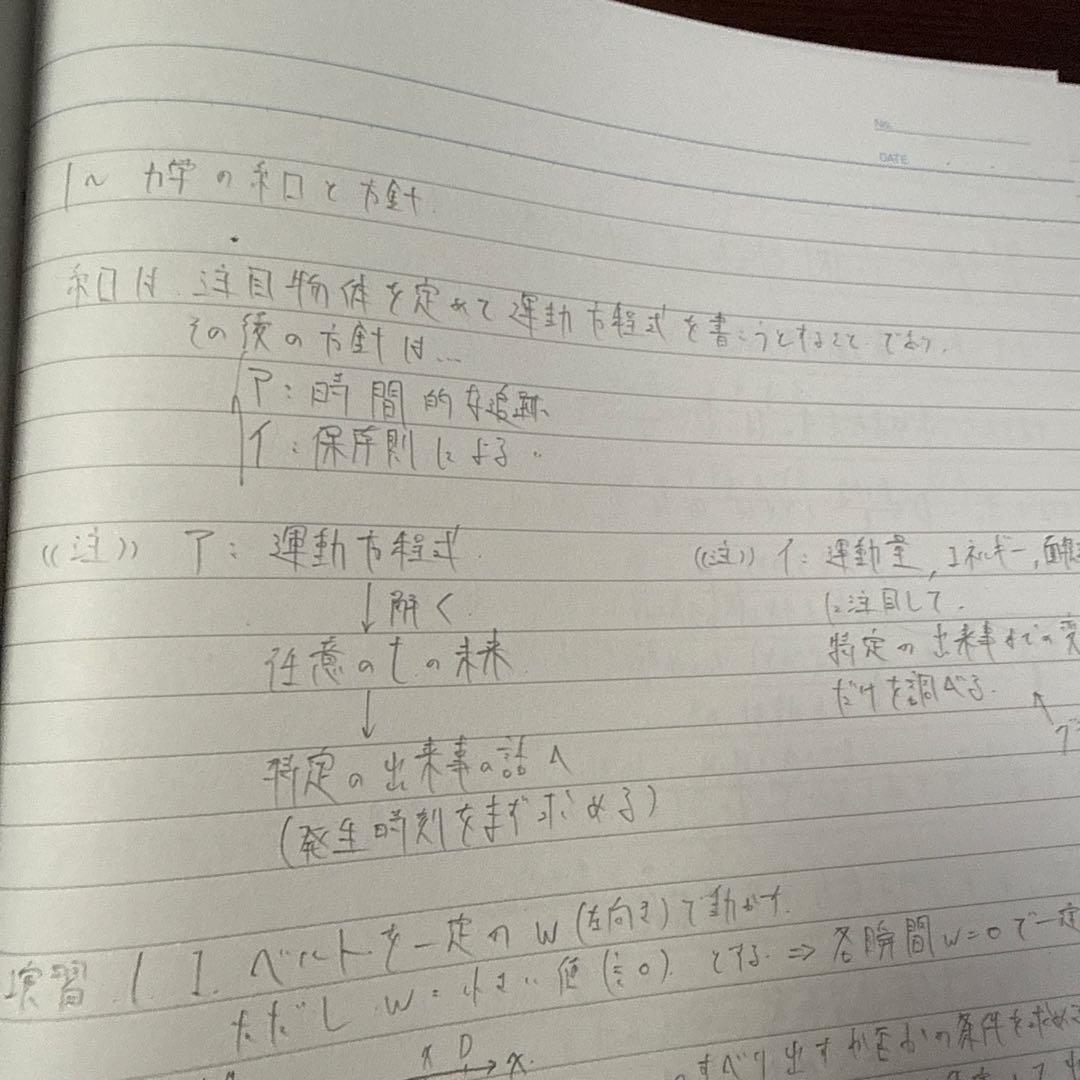 No.
DATE
1~ 力学の糸口と方針.
糸口は 注目物体を定めて運動方程式を書こうとすることであり.
その後の方針は…
ア:時間的な追跡、
イ:保存則による.
((注)) ア: 運動方程式.
↓解く
任意のtの未来
↓
特定の出来事の話へ
(発生時刻をまず求める)
((注)) イ: 運動量, エネルギー,
に注目して.
特定の出来事までの変
だけを調べる.
演習 1 I. ベルトを一定のw(左向き)で動かす.
ただし w=小さい値(≒0) とする ⇒ 各瞬間 w=0で一定
x D x.
すべり出すか否かの条件を求める